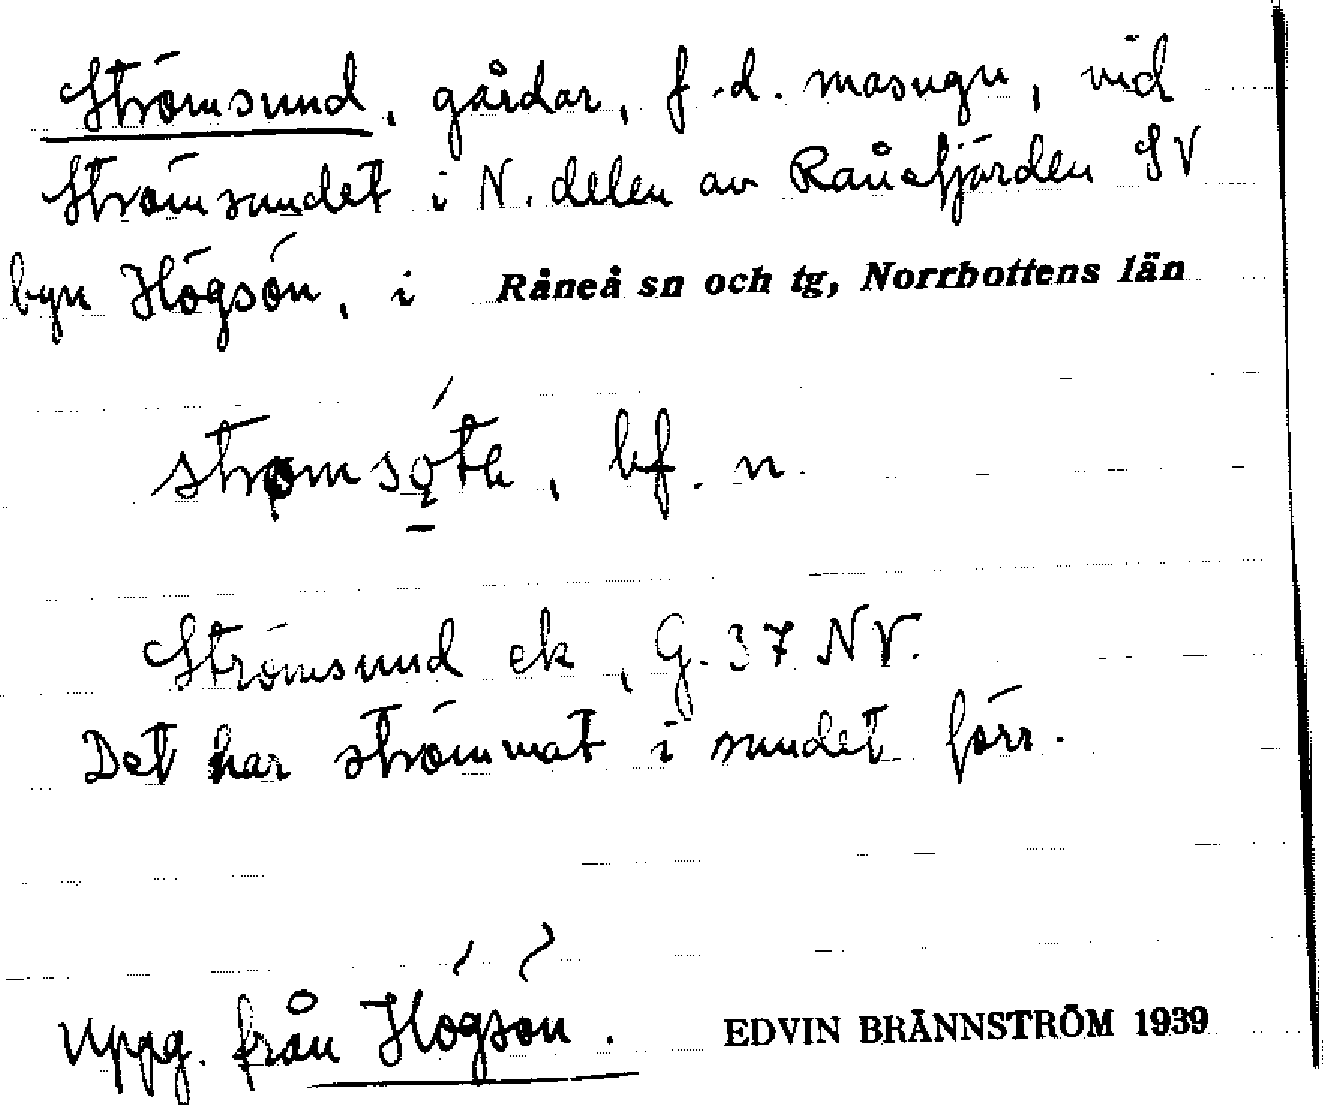 Strömsund, gårdar, f.d. masugn, vid
Strömsundet i N. delen av Rånefjärden SV
byn Högsön, i Råneå sn och tg, Norrbottens län
bf. n.
Strömsund ek, G. 37 NV.
Det har strömmat i sundet förr.
Uppg. från Högsön. EDVIN BRÄNNSTRÖM 1939